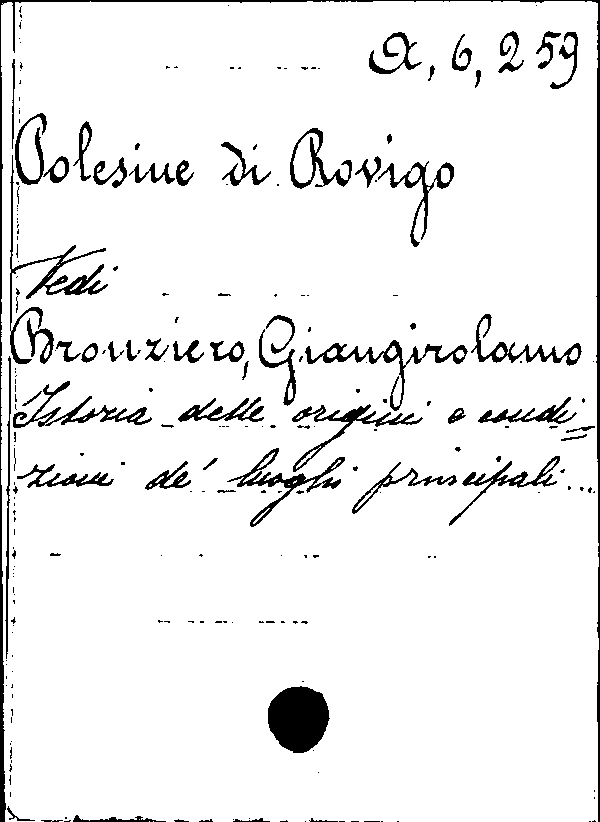 A, 6, 259
Polesine di Rovigo
Vedi
Bronziero, Giangirolamo
Istoria delle origini e condi=
zioni de' luoghi principali...